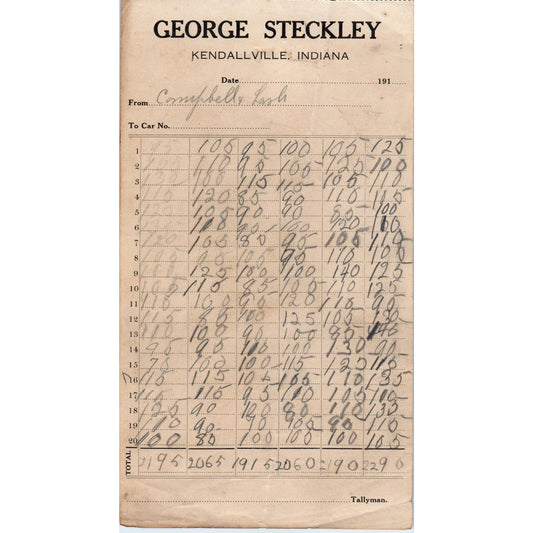 GEORGE STECKLEY
KENDALLVILLE, INDIANA
Date 191
From Campbell & Lash
To Car No.
1 95 105 95 100 105 125
2 110 95 105 125 100
3 115 115 105 110
4 110 120 85 90 110 115
5 105 90 90 90 100
6 110 90 100
7 105 80 95 105 110
8 95 105 95 115 100
9 125 100 100 140 125
10 110 85 125
11 110 100 90 120 110 95
12 115 85 100 125 105 130
13 110 100 90 100 90 140
14 95 95 110 100 130 90
15 75 100 100 115 125 115
16 115 115 100 105 110 135
17 115 95 110 110
18 125 90 120 80 110 135
19 110 90 90 100 90 110
20 100 80 100 100 100 105
TOTAL 2195 2065 1915 2060 2190 2290
Tallyman.